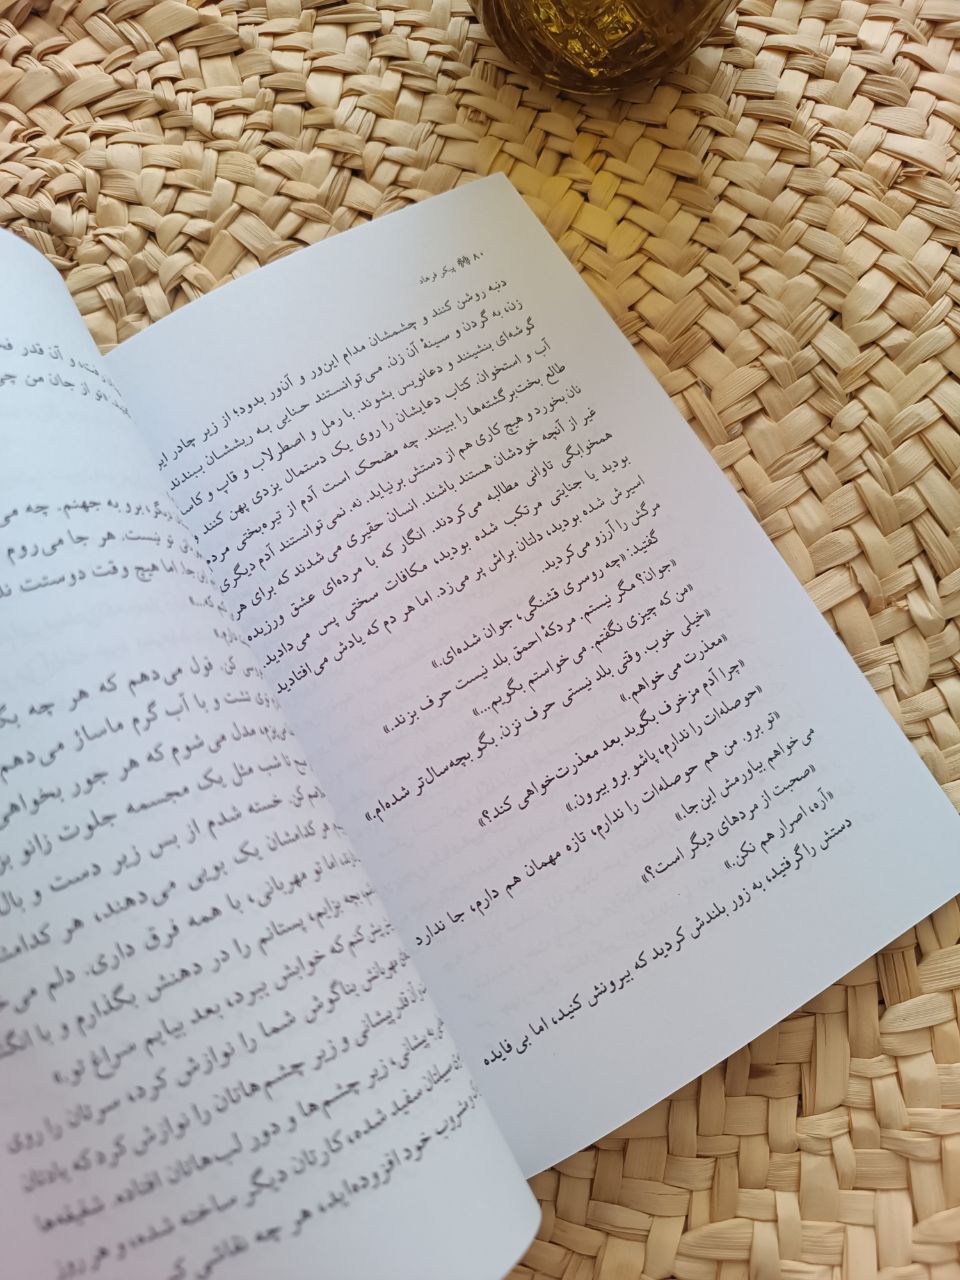 ۸۰ پیکر فرهاد
دنبه روشن کنند و چشمشان مدام این‌ور و آن‌ور بدود؛ از زیر چادر این
زن، به گردن و سینهٔ آن زن. می‌توانستند حنایی به ریششان ببندند
گوشه‌ای بنشینند و دعانویس بشوند. با رمل و اصطرلاب و قاپ و کاسا
آب و استخوان. کتاب دعایشان را روی یک دستمال یزدی پهن کنند و
طالع بخت‌برگشته‌ها را ببینند. چه مضحک است آدم از تیره‌بختی مردم
نان بخورد و هیچ کاری هم از دستش برنیاید. نه نمی‌توانستند آدم دیگری
غیر از آنچه خودشان هستند باشند. انسان حقیری می‌شدند که برای هر
همخوابگی تاوانی مطالبه می‌کردند. انگار که با مرده‌ای عشق ورزیده
بودید یا جنایتی مرتکب شده بودید، مکافات سختی پس می‌دادید.
اسیرش شده بودید، دلتان براش پر می‌زد. اما هر دم که یادش می‌افتادید
مرگش را آرزو می‌کردید.
گفتید: «چه روسری قشنگی، جوان شده‌ای.»
«جوان؟ مگر نیستم. مردکهٔ احمق بلد نیست حرف بزند.»
«من که چیزی نگفتم. می‌خواستم بگویم...»
«خیلی خوب. وقتی بلد نیستی حرف نزن. بگو بچه‌سال‌تر شده‌ام.»
«معذرت می‌خواهم.»
«چرا آدم مزخرف بگوید بعد معذرت‌خواهی کند؟»
«حوصله‌ات را ندارم، پاشو برو بیرون.»
«تو برو. من هم حوصله‌ات را ندارم، تازه مهمان هم دارم، جا ندارد
می‌خواهم بیاورمش این‌جا.»
«صحبت از مردهای دیگر است؟»
«آره، اصرار هم نکن.»
دستش را گرفتید، به زور بلندش کردید که بیرونش کنید، اما بی‌فایده
و آن قدر
از جان من
برو به جهنم. چه می
نیست. هر جا می‌روم
اما هیچ وقت دوستت
کن. قول می‌دهم که هر چه
تشت و با آب گرم ماساژ می‌دهم
مدل می‌شوم که هر جور بخواهی
تا شب مثل یک مجسمه جلوت زانو
کن. خسته شدم از بس زیر دست و بال
کدامشان یک بویی می‌دهند، هر کدامشا
اما تو مهربانی، با همه فرق داری. دلم می‌
بچه بزایم، پستانم را در دهنش بگذارم و با
کنم که خوابش ببرد، بعد بیایم سراغ تو.»
بناگوش شما را نوازش کرد، سرتان را روی
پیشانی و زیر چشم‌هاتان را نوازش کرد که یادتان
پیشانی، زیر چشم‌ها و دور لب‌هاتان افتاده. شقیقه‌ها
سفید شده، کارتان دیگر ساخته شده، و هر روز
خود افزوده‌اید، هر چه نقاشی